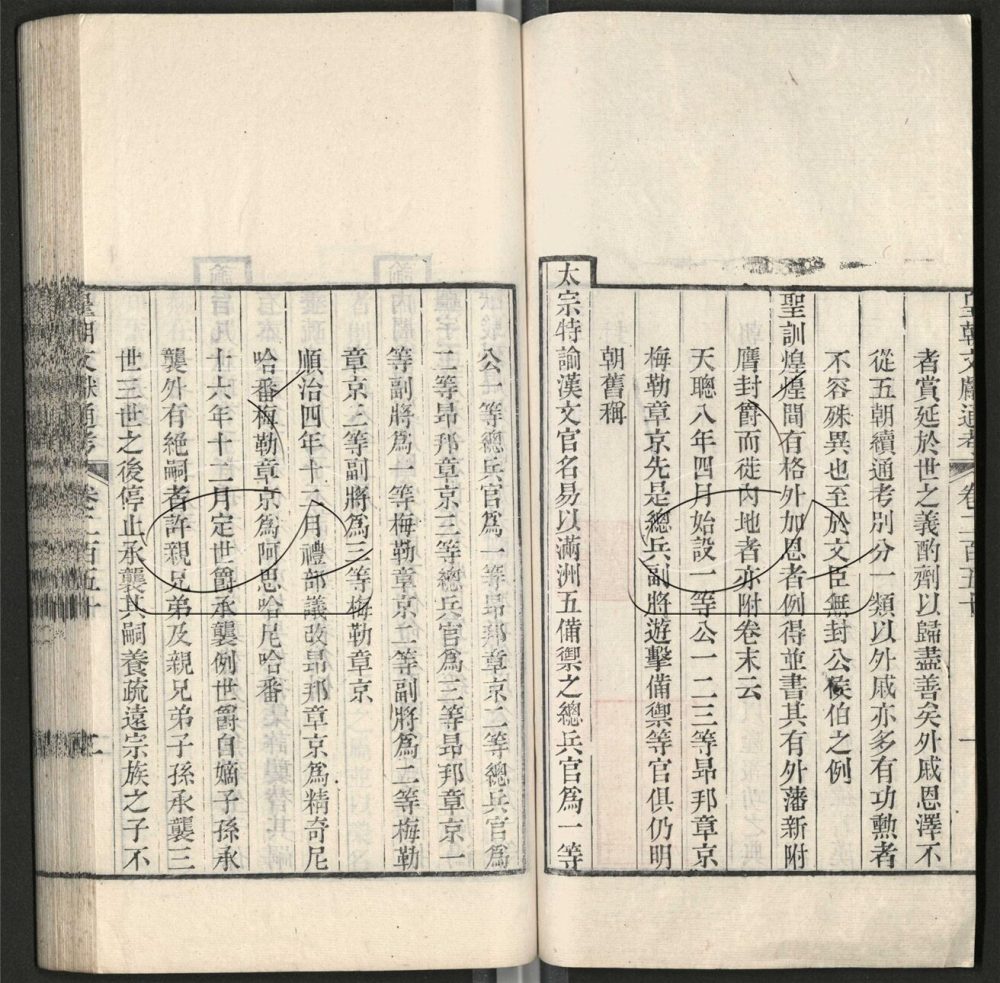 皇朝文獻通考 卷二百五十 一
者賞延於世之義酌劑以歸盡善矣外戚恩澤不
從五朝續通考別分一類以外戚亦多有功勳者
不容殊異也至於文臣無封公侯伯之例
聖訓煌煌間有格外加恩者例得並書其有外藩新附
膺封爵而徙內地者亦附卷末云
天聰八年四月始設一等公一二三等昂邦章京
梅勒章京先是總兵副將遊擊備禦等官俱仍明
朝舊稱
太宗特諭漢文官名易以滿洲五備禦之總兵官為一等
公一等總兵官為一等昂邦章京二等總兵官為
二等昂邦章京三等總兵官為三等昂邦章京一
等副將為一等梅勒章京二等副將為二等梅勒
章京三等副將為三等梅勒章京
順治四年十二月禮部議改昂邦章京為精奇尼
哈番梅勒章京為阿思哈尼哈番
十六年十二月定世爵承襲例世爵自嫡子孫承
襲外有絕嗣者許親兄弟及親兄弟子孫承襲三
世三世之後停止承襲其嗣養疏遠宗族之子不
皇朝文獻通考 卷二百五十 二